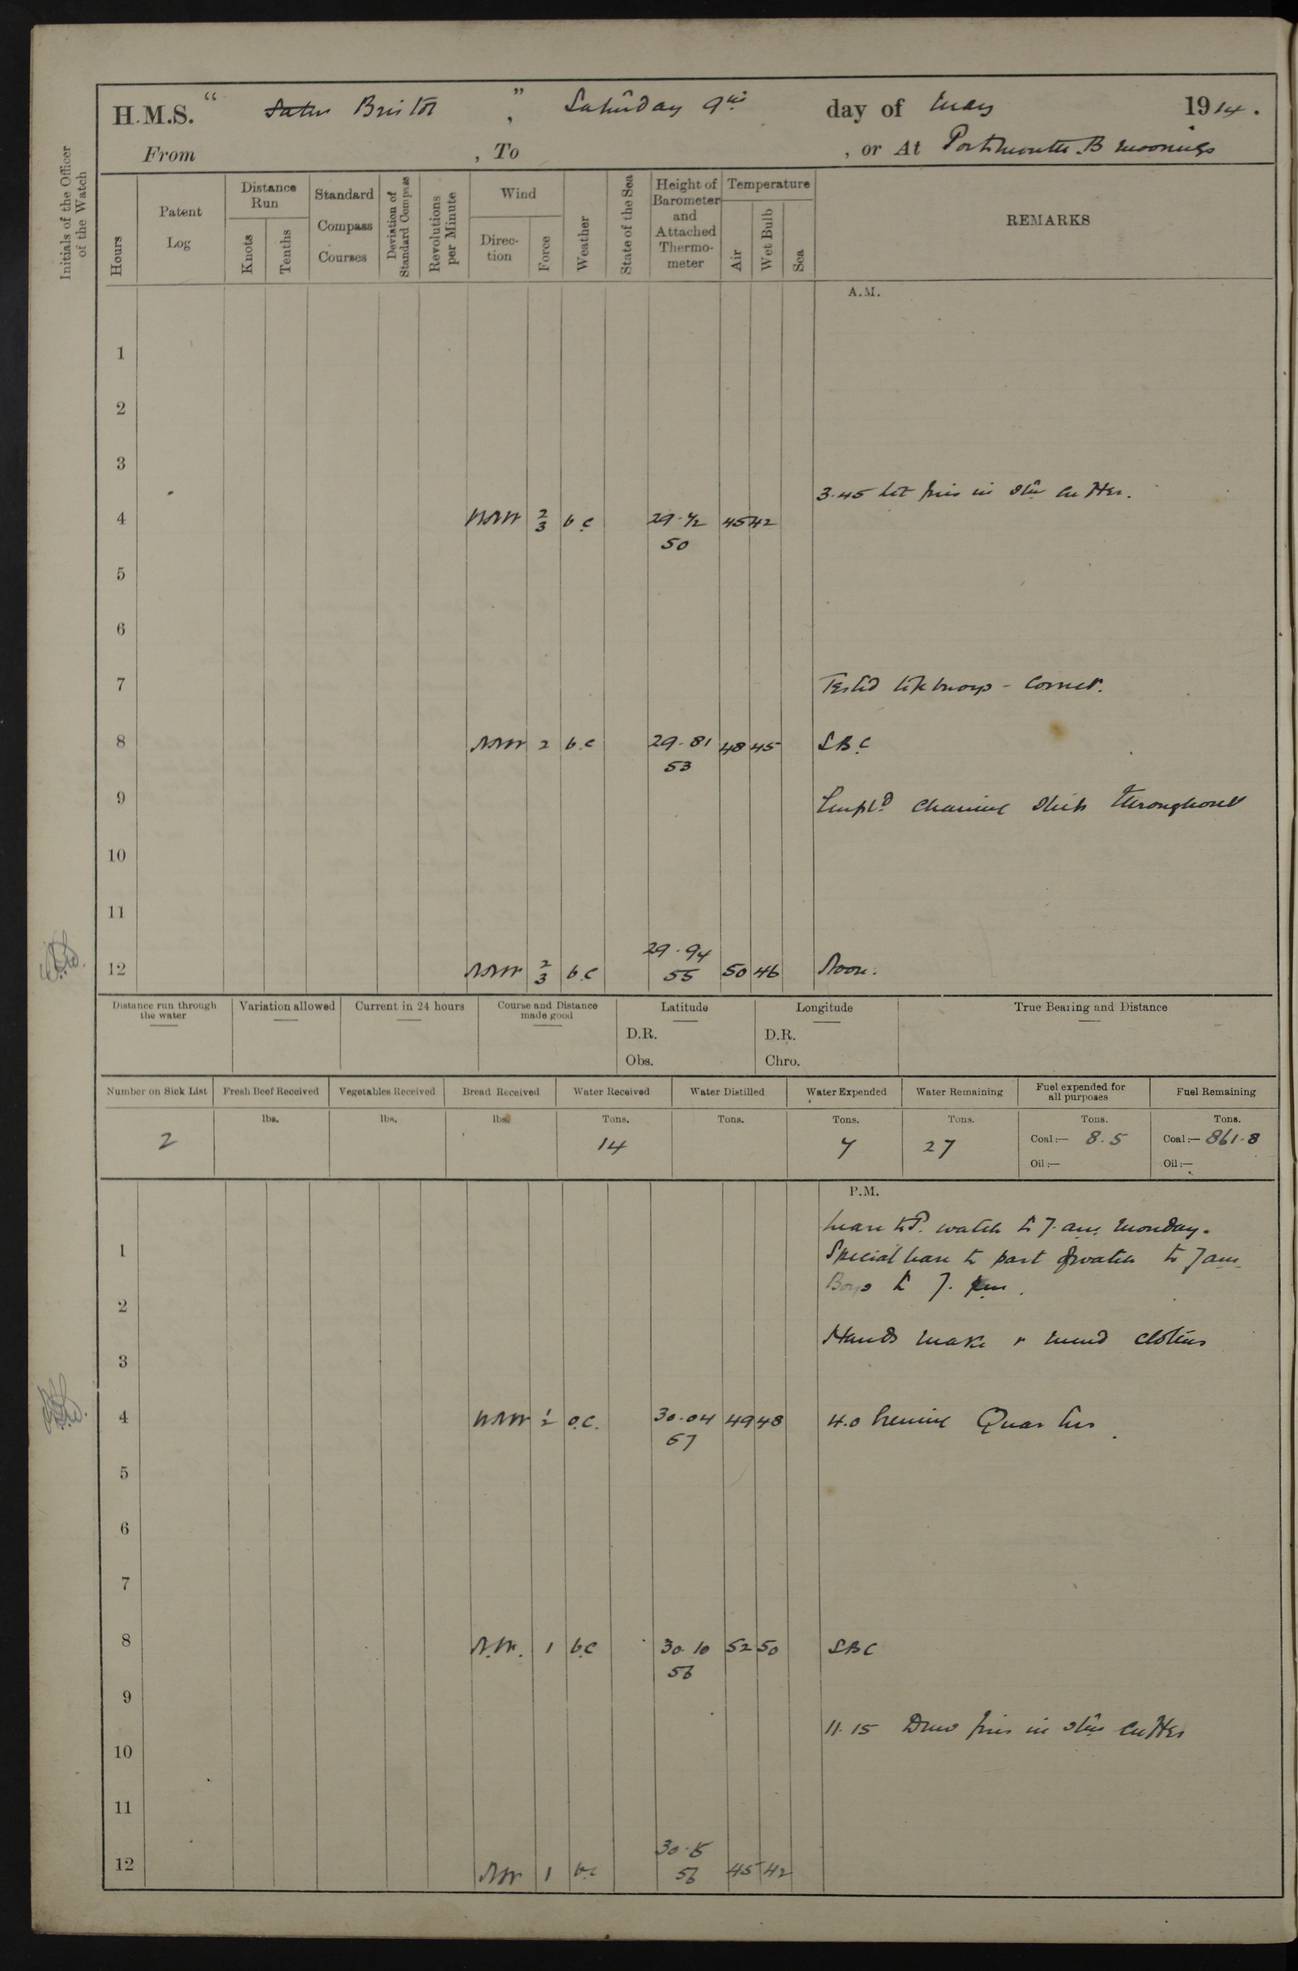 H.M.S. " Bristol ", Saturday 9th day of May 1914.
From , To , or At Portsmouth. B moorings
Initials of the Officer of the Watch
Hours
Patent Log
Distance Run
Knots
Tenths
Standard Compass Courses
Deviation of Standard Compass
Revolutions per Minute
Wind
Direction
Force
Weather
State of the Sea
Height of Barometer and Attached Thermometer
Temperature
Air
Wet Bulb
Sea
REMARKS
A.M.
1
2
3
3.45 lit fires in stbd cutter.
4 NNW 2/3 b.c 29.72 45 42
50
5
6
7 Tested life buoys - correct.
8 NNW 2 b.c 29.81 48 45 SBC
53
9 Empld cleaning ship throughout
10
11
29.94
12 NNW 2/3 b.c 55 50 46 Noon.
Distance run through the water
Variation allowed
Current in 24 hours
Course and Distance made good
Latitude
D.R.
Obs.
Longitude
D.R.
Chro.
True Bearing and Distance
Number on Sick List
Fresh Beef Received
Vegetables Received
Bread Received
Water Received
Water Distilled
Water Expended
Water Remaining
Fuel expended for all purposes
Fuel Remaining
lbs. lbs. lbs. Tons. Tons. Tons. Tons. Tons. Tons.
2 14 7 27 Coal:— 8.5 Coal:— 861.8
Oil:— Oil:—
P.M.
Leave to P. watch to 7. am. Monday.
1 Special leave to part of watch to 7am
Boys to 7. pm.
2
Hands make & mend clothes
3
4 NNW 1/2 o.c. 30.04 49 48 4.0 Evening Quarters
57
5
6
7
8 N.W. 1 b.c 30.10 52 50 SBC
56
9
11.15 Drew fires in stbd cutter
10
11
12 NW 1 b.c 56 45 42